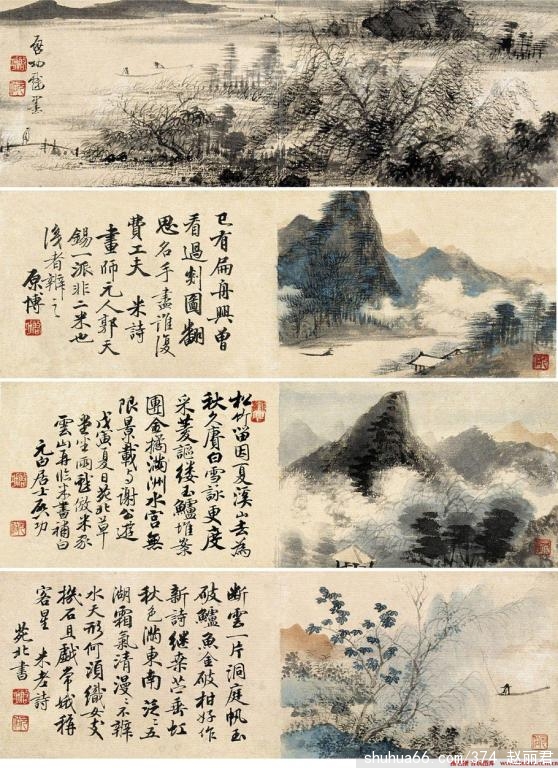 啓功戲墨
已有扁舟興曾
看過剡圖翻
思名手盡誰復
費工夫 米詩
畫師元人郭天
錫一派非二米也
淺者辨之
原博
松竹留因夏溪山去為
秋久賡白雪詠更度
采菱謳縷玉鱸堆案
團金橘滿洲水宮無
限景載与謝公遊
戊寅夏日苑北草
堂坐雨戲倣米家
雲山再臨米書補白
元白居士啓功
断雲一片洞庭帆玉
破鱸魚金破柑好作
新詩繼桑苎垂虹
秋色滿東南泛泛五
湖霜氣清漫漫不辨
水天形何須織女支
機石且戲常娥稱
客星 米老詩
苑北書
shuhua66 . com/374_赵丽君